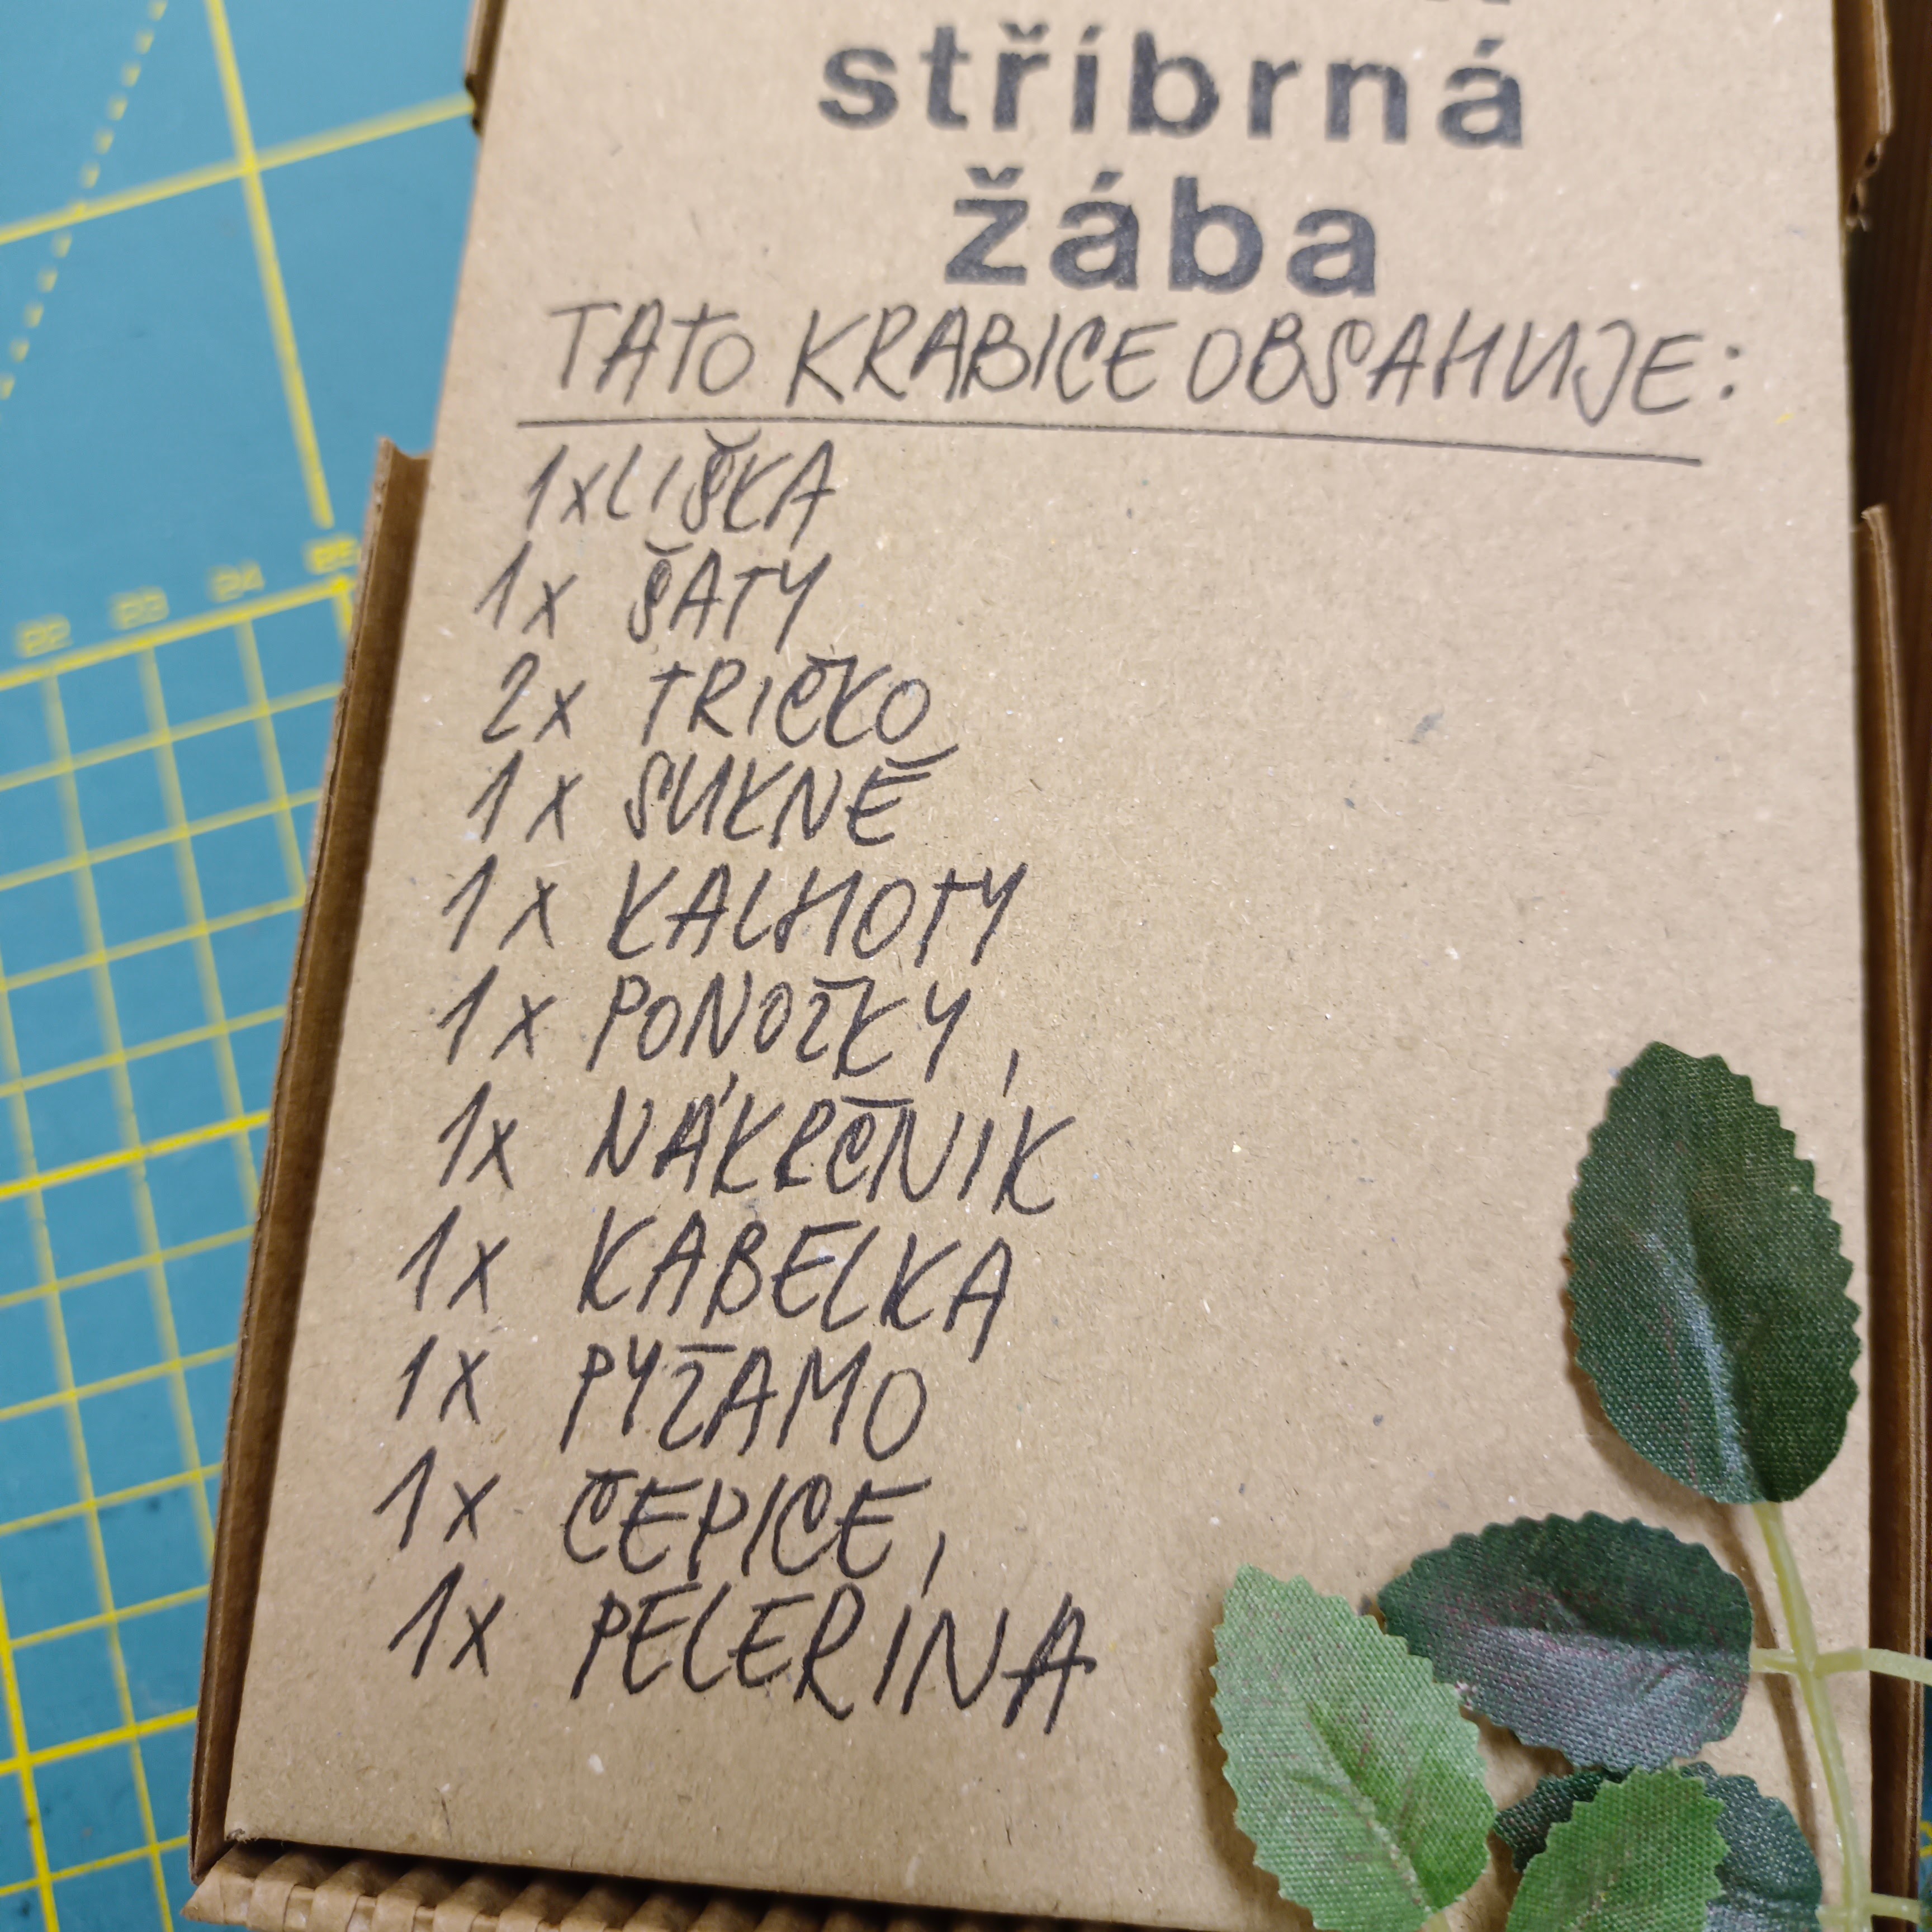 stříbrná
žába
TATO KRABICE OBSAHUJE:
1x LIŠKA
1x ŠATY
2x TRIČKO
1x SUKNĚ
1x KALHOTY
1x PONOŽKY
1x NÁKRČNÍK
1x KABELKA
1x PYŽAMO
1x ČEPICE
1x PELERÍNA
22 23 24 25